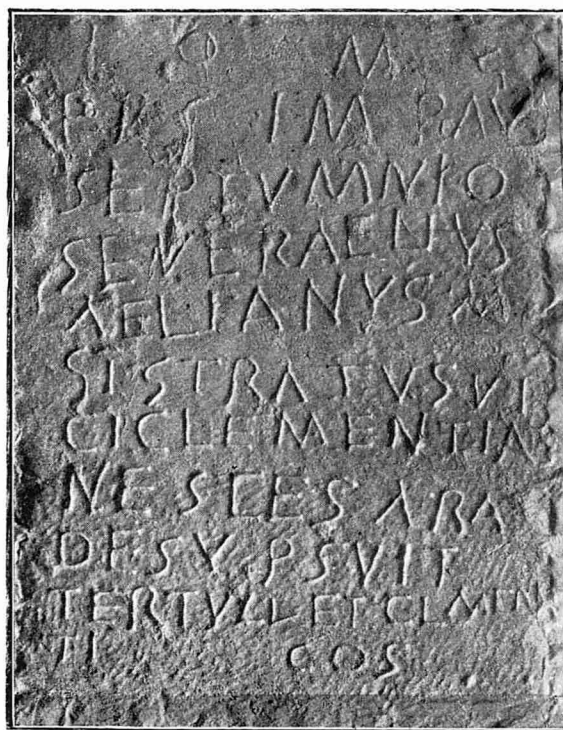 I O M
PRS IMP AVG
SEPTVMNIO
SEVERAELIVS
AELIANVS M
SISTRATVS VI
CI CLEMENTIA
NESCES ARA
DE SV PSVIT
TERTVLL ET CLMEN
TI COS